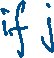 if j